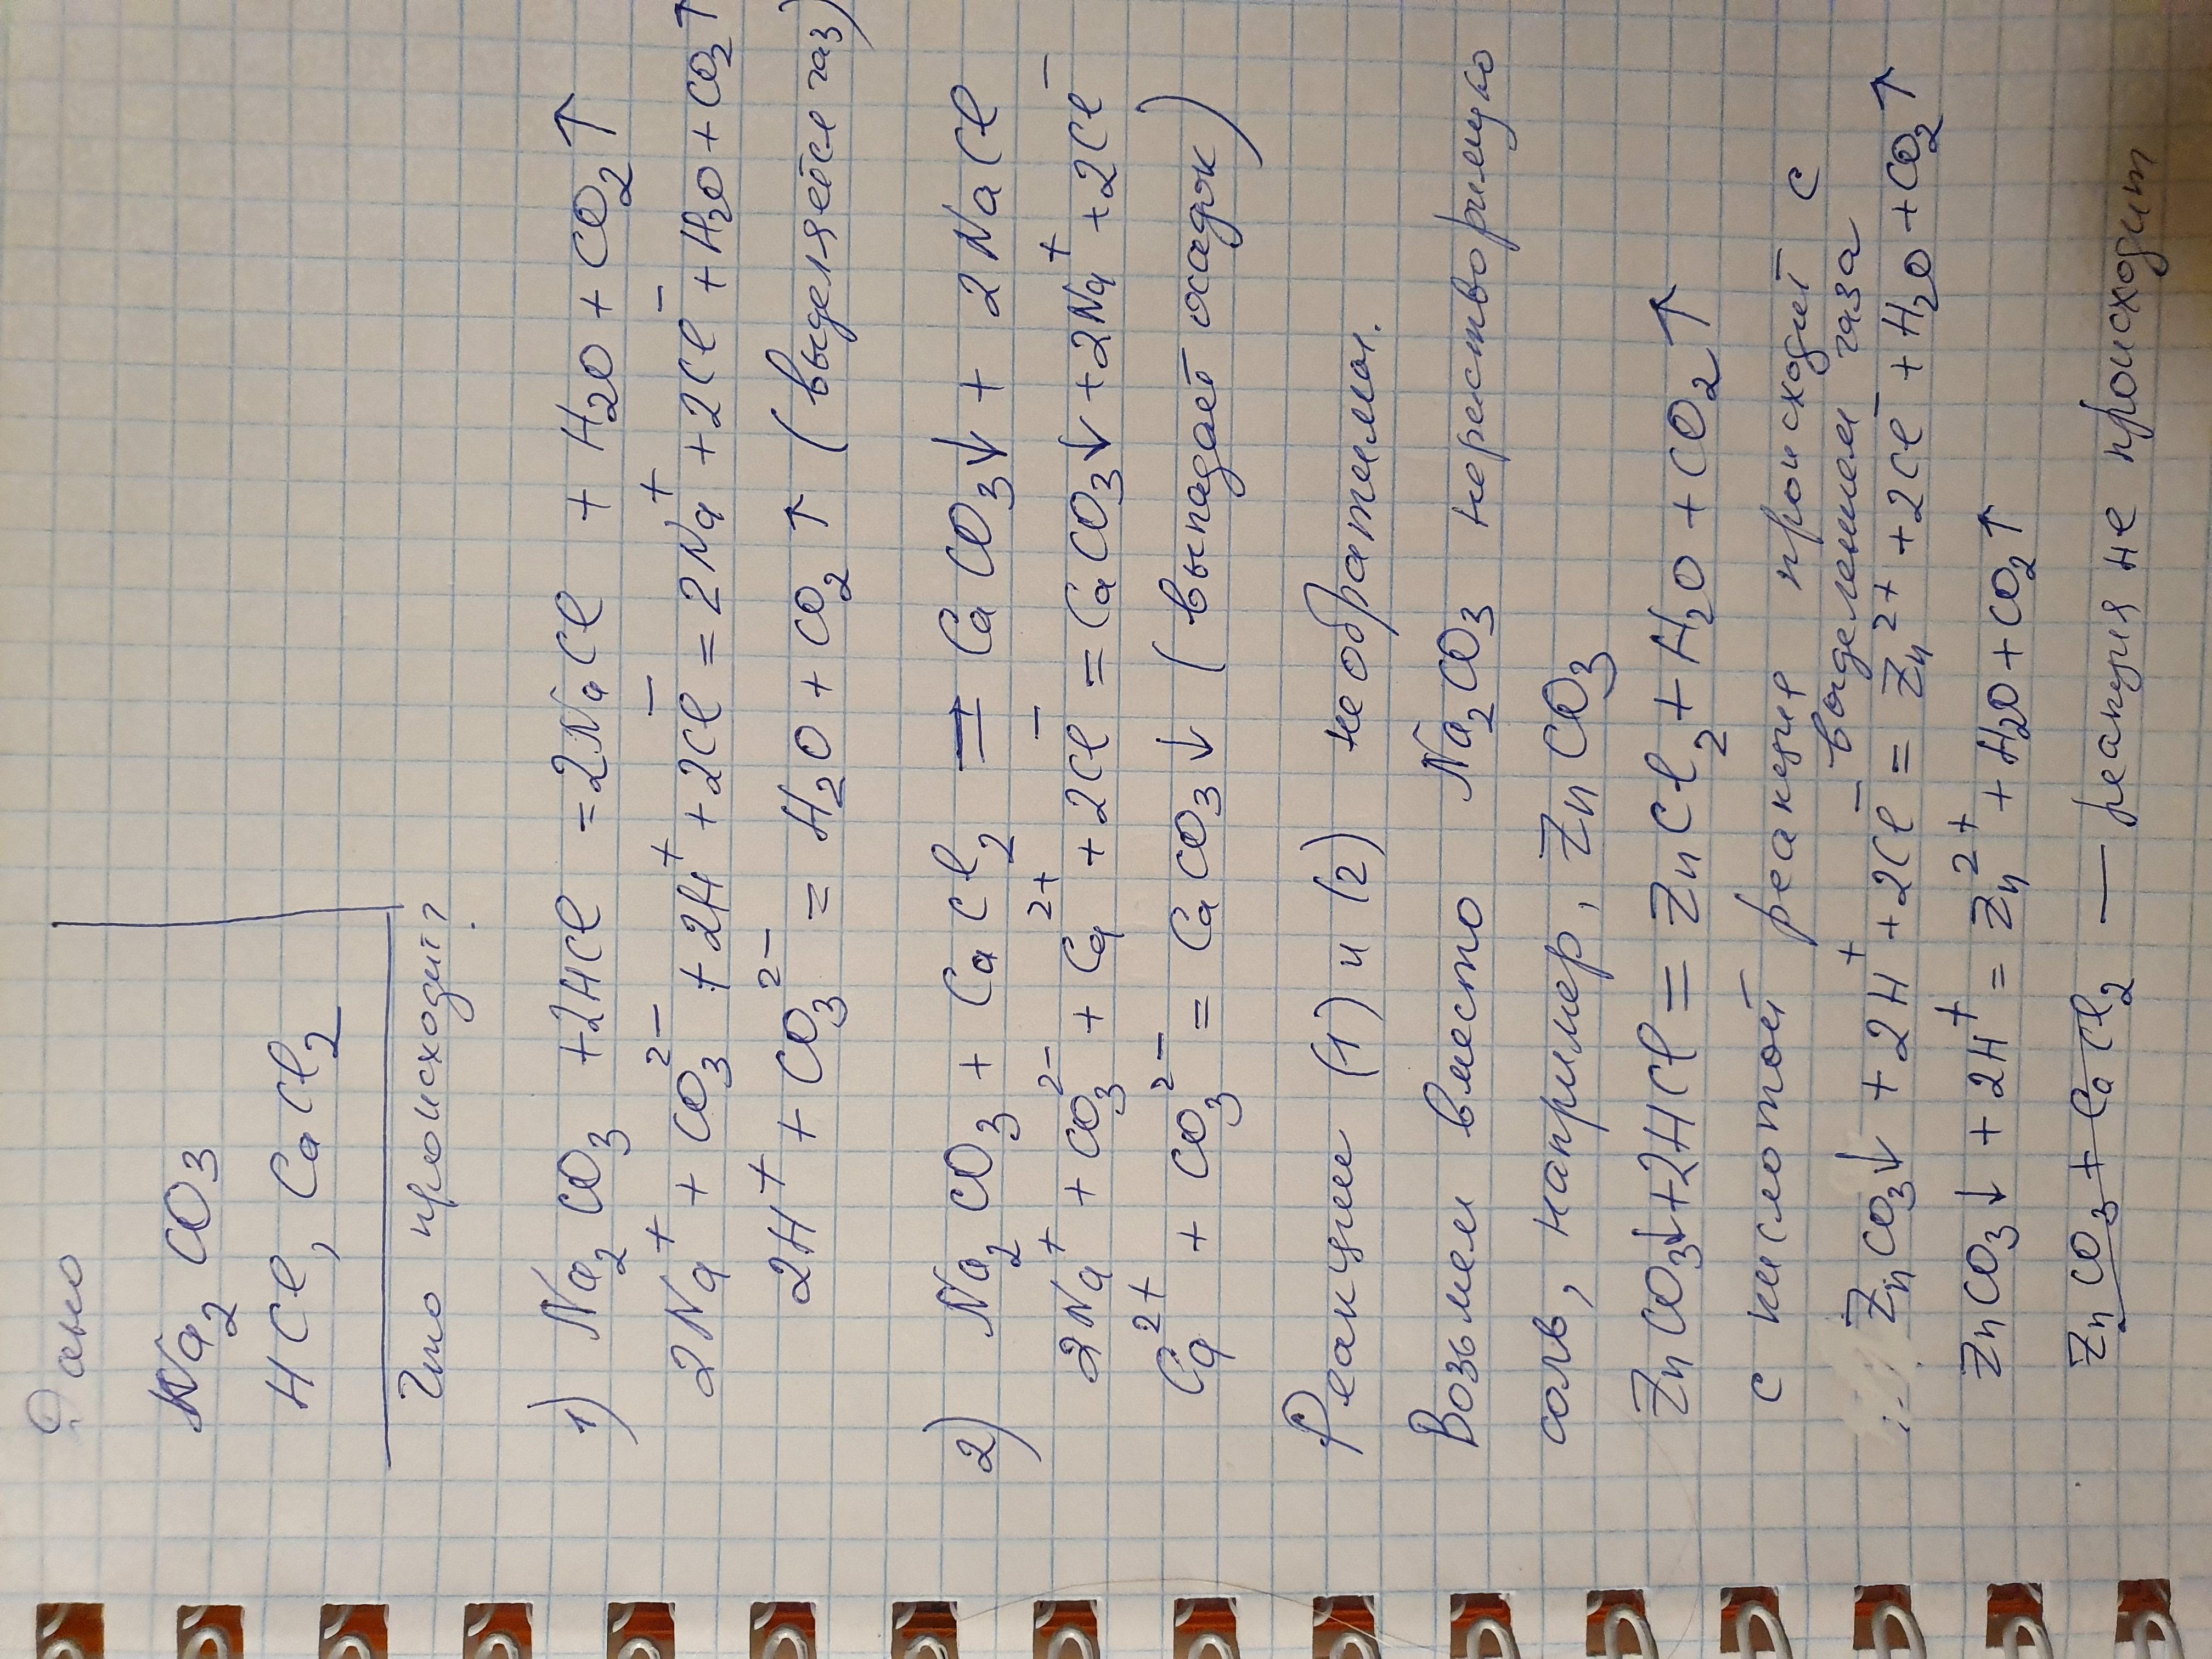 Дано
Na₂CO₃
HCl, CaCl₂
Что происходит?
1) Na₂CO₃ + 2HCl = 2NaCl + H₂O + CO₂↑
2Na⁺ + CO₃²⁻ + 2H⁺ + 2Cl⁻ = 2Na⁺ + 2Cl⁻ + H₂O + CO₂↑
2H⁺ + CO₃²⁻ = H₂O + CO₂↑ (выделяется газ)
2) Na₂CO₃ + CaCl₂ = CaCO₃↓ + 2NaCl
2Na⁺ + CO₃²⁻ + Ca²⁺ + 2Cl⁻ = CaCO₃↓ + 2Na⁺ + 2Cl⁻
Ca²⁺ + CO₃²⁻ = CaCO₃↓ (выпадает осадок)
Реакции (1) и (2) необратимы.
Возьмем вместо Na₂CO₃ нерастворимую
соль, например, ZnCO₃
ZnCO₃↓ + 2HCl = ZnCl₂ + H₂O + CO₂↑
с кислотой реакция происходит с
выделением газа
ZnCO₃↓ + 2H⁺ + 2Cl⁻ = Zn²⁺ + 2Cl⁻ + H₂O + CO₂↑
ZnCO₃↓ + 2H⁺ = Zn²⁺ + H₂O + CO₂↑
ZnCO₃ + CaCl₂ — реакция не происходит